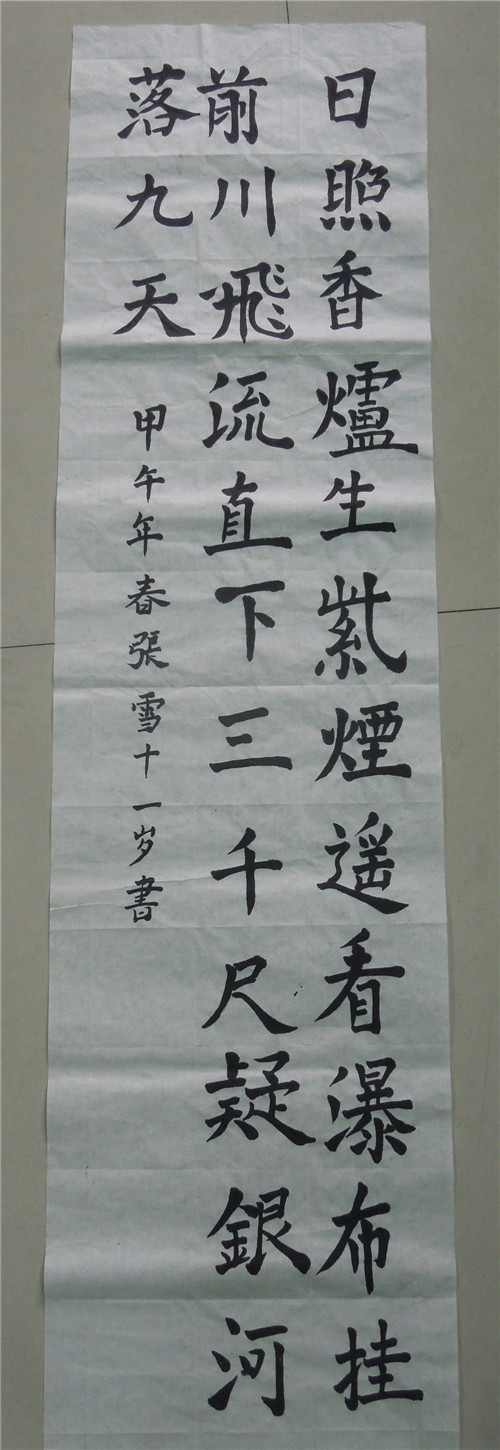 日照香爐生紫煙遥看瀑布挂
前川飛流直下三千尺疑銀河
落九天
甲午年春張雪十一岁書